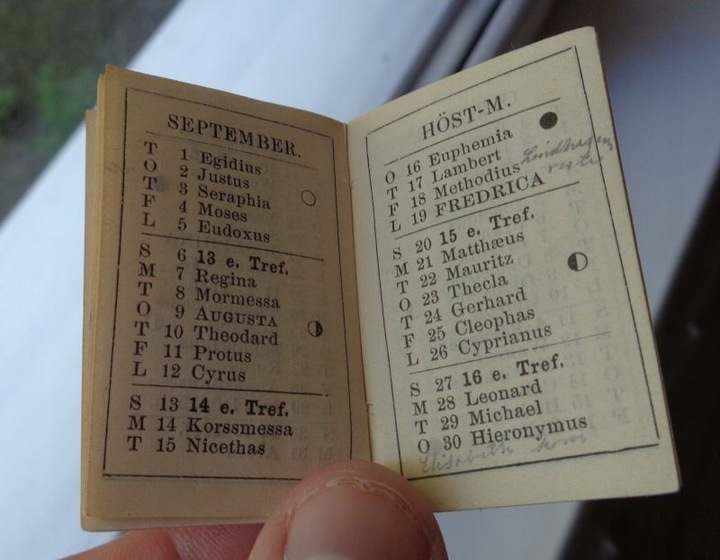 SEPTEMBER.
T 1 Egidius
O 2 Justus
T 3 Seraphia
F 4 Moses
L 5 Eudoxus
S 6 13 e. Tref.
M 7 Regina
T 8 Mormessa
O 9 AUGUSTA
T 10 Theodard
F 11 Protus
L 12 Cyrus
S 13 14 e. Tref.
M 14 Korssmessa
T 15 Nicethas
HÖST-M.
O 16 Euphemia
T 17 Lambert
F 18 Methodius
L 19 FREDRICA
S 20 15 e. Tref.
M 21 Matthæus
T 22 Mauritz
O 23 Thecla
T 24 Gerhard
F 25 Cleophas
L 26 Cyprianus
S 27 16 e. Tref.
M 28 Leonard
T 29 Michael
O 30 Hieronymus